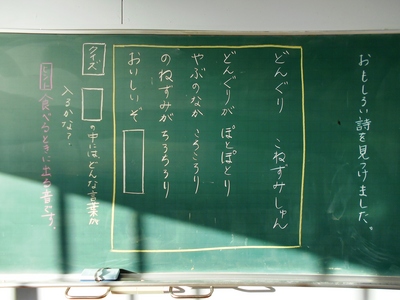 おもしろい詩を見つけました。
どんぐり こねずみしゅん
どんぐりが ぽとぽとり
やぶのなか ころころり
のねずみが ちろちろり
おいしいぞ
クイズ の中にはどんな言葉が
入るかな？
ヒント 食べるときに出る音です。